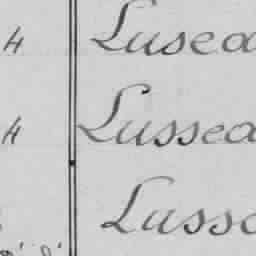 4 Lusea
4 Lussea
Lusse